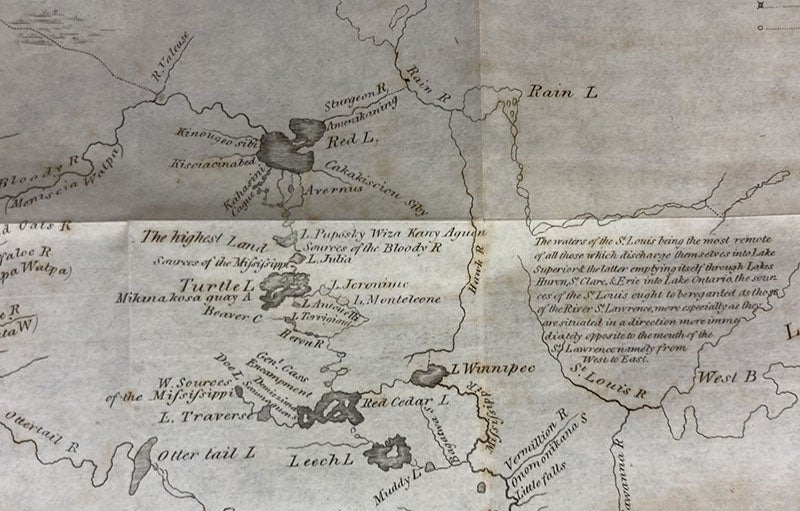 R. Valeuse
Rain R
Rain L
Sturgeon R.
Amenikaning
Red L.
Kinougeo sibi
Kisciacinabed
Bloody R
(Meniscia Walpa)
Kahasini
Cogue
Avernus
Cakakiscion siby
d Oats R
L. Puposky Wiza Kany Aguen
The highest Land
Sources of the Bloody R
faloe R
pa Walpa)
Sources of the Missisippi
L. Julia
Hawk R
The waters of the St. Louis being the most remote
of all those which discharge themselves into Lake
Superior & the latter emptying itself through Lakes
Huron, St. Clare, & Erie into Lake Ontario, the sour
ces of the St. Louis ought to be regarded as those
of the River St. Lawrence, more especially as they
are situated in a direction more imme
diately opposite to the mouth of the
St. Lawrence namely from
West to East.
Turtle L
L. Jerowine
Mikinakosa quay A
L. Antonelli
L. Monteleone
Beaver C
L. Torrigiani
e R
ta W)
Heron R
Genl. Cass
Encampment
Doe L
Demizima
W. Sources
of the Missisippi
L. Traverse
Red Cedar L
L Winnipec
Missisippi R
St. Louis R
West B
L
Ottertail R
Otter tail L
Leech L
Muddy L
Bogdana S
Vermillion R
Onomonikana S
Little falls
awanna R